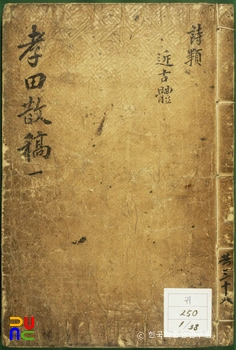 孝田散稿 一
詩類
近古體
共三十八
귀
250
1/38
PUNC
© 한국